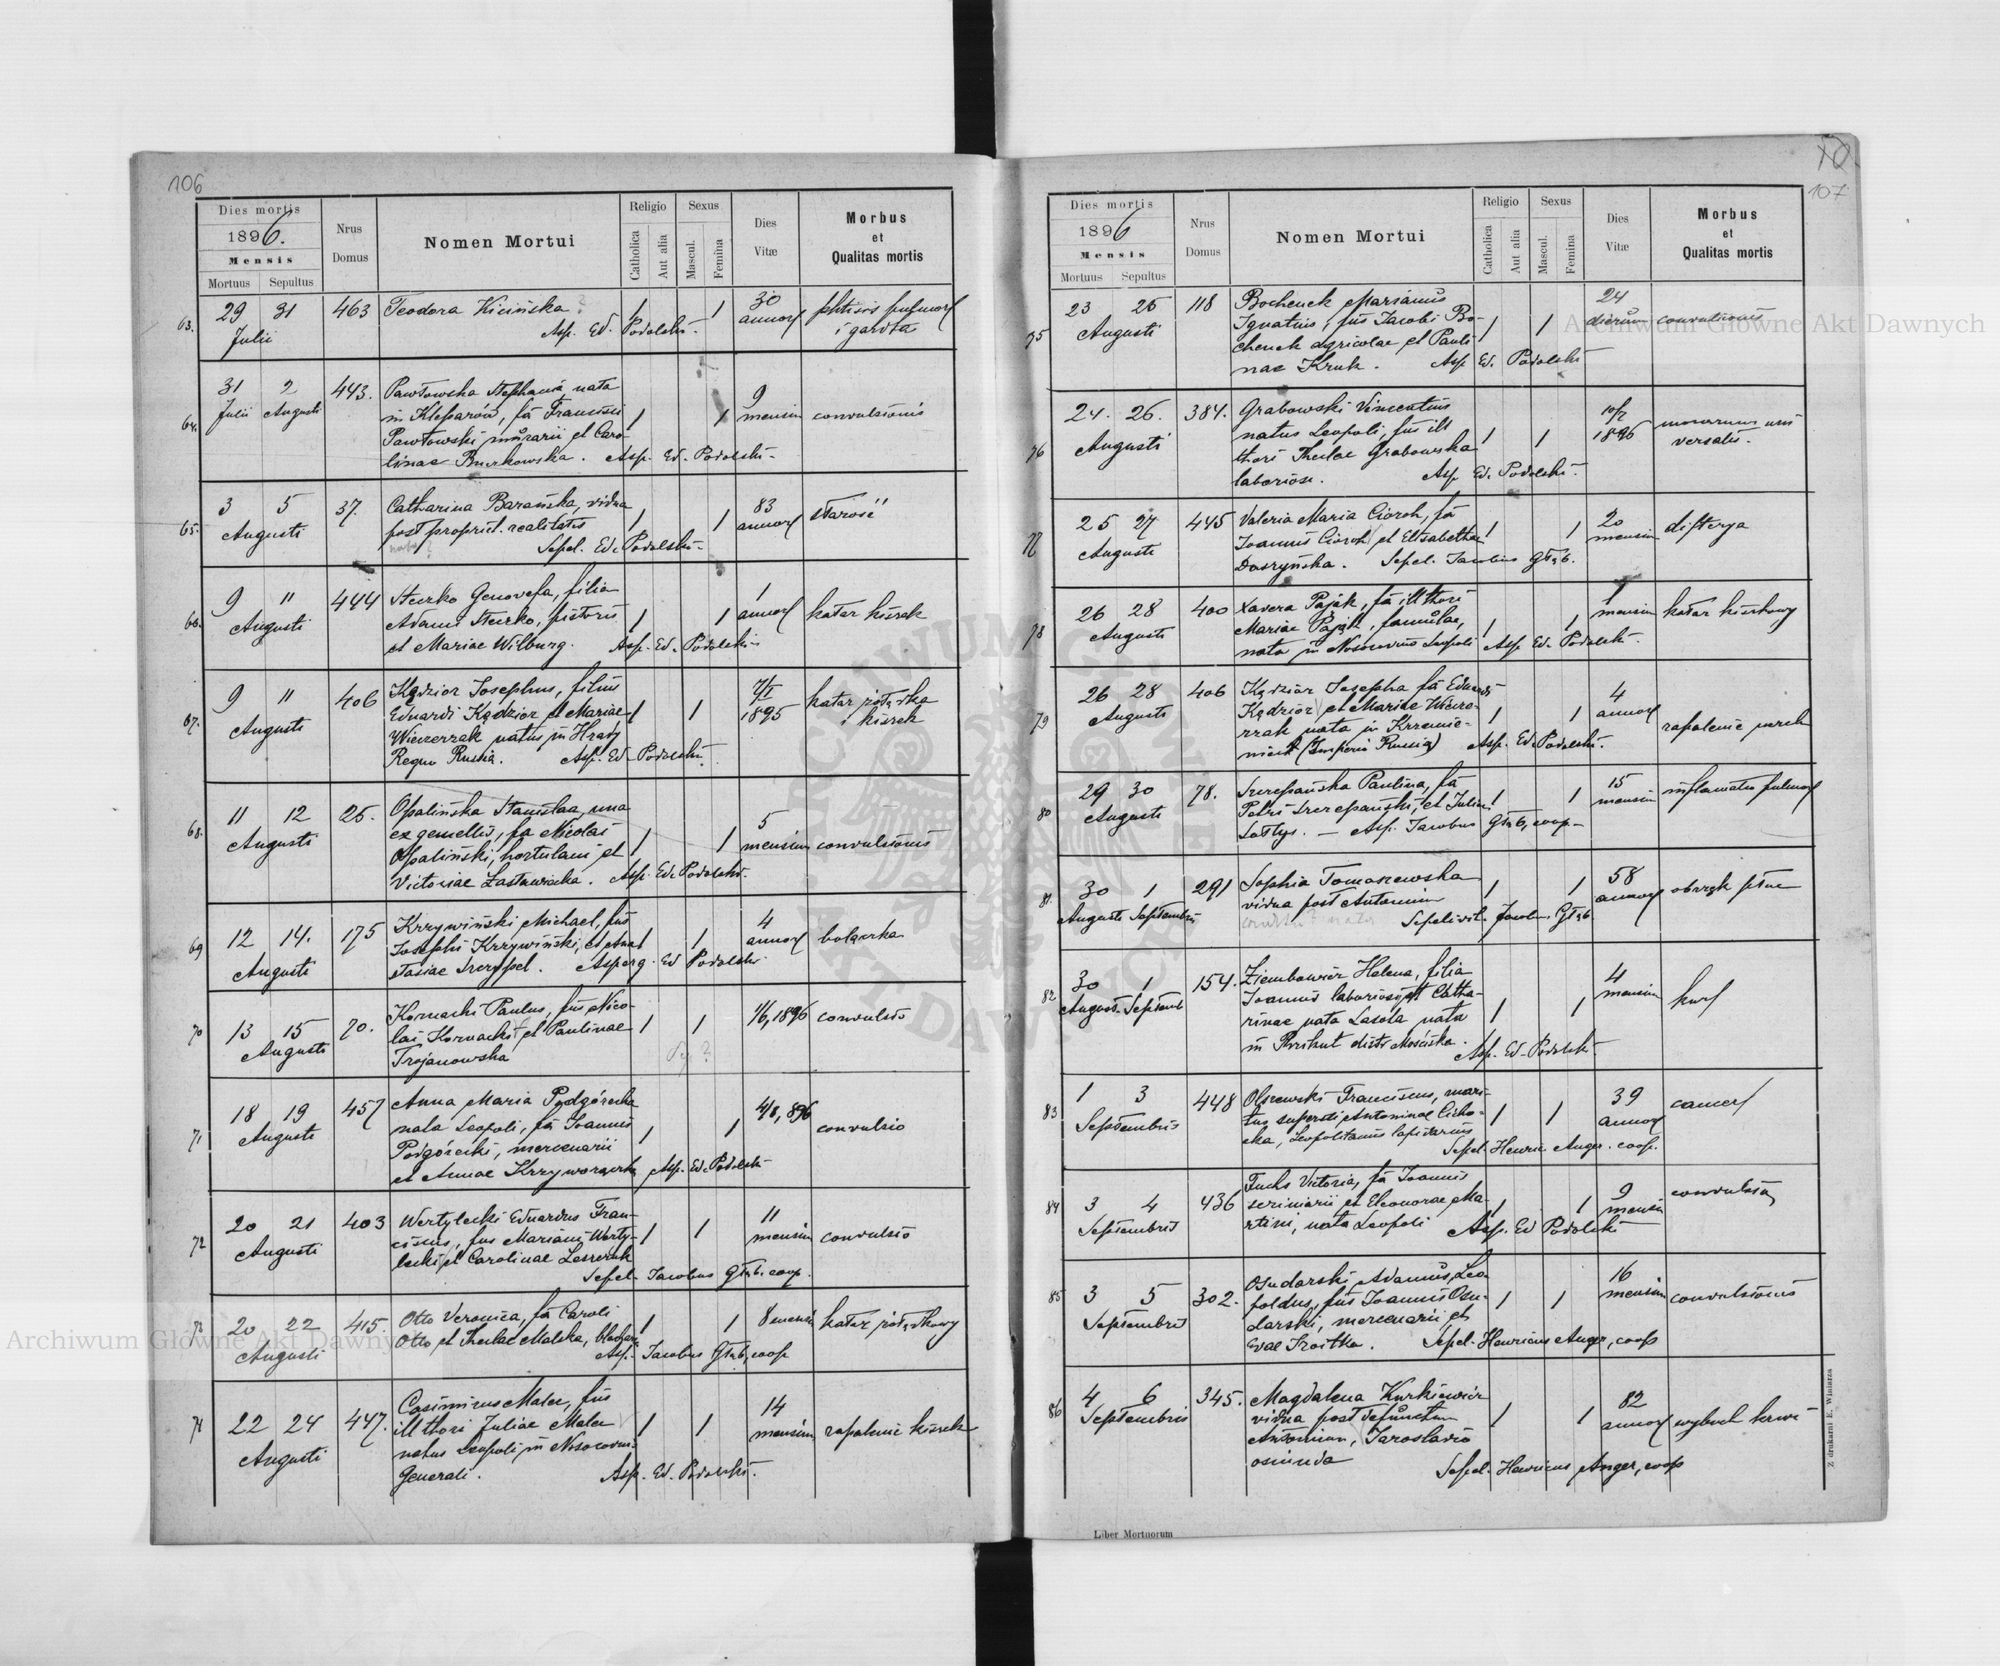 106
Dies mortis
1896.
Mensis
Mortuus Sepultus
Nrus
Domus
Nomen Mortui
Religio
Catholica
Aut alia
Sexus
Mascul.
Femina
Dies
Vitæ
Morbus
et
Qualitas mortis
63. 29 31 463 Teodora Kicińska ? 1 1 30 phtisis pulmon
Julii Asp. Ed. Podolski. annor i gardła
64. 31 2 443. Pawłowska Stephania nata 9
Julii Augusti in Kleparow, fa Francisci 1 1 mensium convulsionis
Pawłowski murarii et Caro-
linae Burkowska. Asp. Ed. Podolski.
65. 3 5 37. Catharina Barańska, vidua 83
Augusti post propriet. realitatis 1 1 annor starość
nata ? Sepel. Ed. Podolski.
66. 9 11 444 Steczko Genovefa, filia 1
Augusti Adami Steczko, pistoris 1 1 annor katar kiszek
et Mariae Wilburg. Asp. Ed. Podolski
67. 9 11 406 Kędzior Josephus, filius 7/I katar żołądka
Augusti Eduardi Kędzior et Mariae 1 1 1895 i kiszek
Wieczerzak natus in
Regno Russia. Asp. Ed. Podolski.
68. 11 12 25. Opalińska Stanislaa, una 5
Augusti ex gemellis, fa Nicolai 1 1 mensium convulsionis
Opaliński, hortulani et
Victoriae Zastawiecka. Asp. Ed. Podolski.
69 12 14. 175 Krzywiński Michael, fus 4
Augusti Josephi Krzywiński, et Ana- 1 1 annor
stasiae Asperg. Ed Podolski.
70 13 15 70. Kornacki Paulus, fus Nico- 1/6, 1896 convulsio
Augusti lai Kornacki et Paulinae 1 1
Trojanowska
71 18 19 457 Anna Maria Podgórecka 4/8, 896
Augusti nata Leopoli, fa Joannis 1 1 convulsio
Podgórecki, mercenarii
et Annae Asp. Ed. Podolski
72 20 21 403 Wertylecki Eduardus Fran- 11
Augusti ciscus, fus Mariani Werty- 1 1 mensium convulsio
lecki et Carolinae Leszczak
Sepel. Jacobus Głąb. coop.
73 20 22 415 Otto Veronica, fa Caroli 1 1 8 mensium katar żołądkowy
Augusti Otto et Theclae Malska,
Asp. Jacobus Głąb, coop
74 22 24 447. Casimirus Malec, fus 14
Augusti ill thori Juliae Malec 1 1 mensium zapalenie kiszek
natus Leopoli in Nosocomio
Generali. Asp. Ed. Podolski.
70
107
Dies mortis
1896
Mensis
Mortuus Sepultus
Nrus
Domus
Nomen Mortui
Religio
Catholica
Aut alia
Sexus
Mascul.
Femina
Dies
Vitæ
Morbus
et
Qualitas mortis
75 23 25 118 Bochenek Marianus 24
Augusti Ignatius, fus Jacobi Bo- 1 1 dierum convulsionis
chenek agricolae et Pauli-
nae Kruk. Asp Ed. Podolski
76 24. 26. 384. Grabowski Vincentius 10/7
Augusti natus Leopoli, fus ill 1 1 1896 uni
thori Theclae Grabowska versalis.
laboriosa. Asp Ed. Podolski.
77 25 27 445 Valeria Maria Cioroh, fa 1 1 20 difterya
Augusti Joannis Cioroh et Elisabethae mensium
Daszyńska. Sepel. Jacobus Głąb.
78 26 28 400 Xavera Pająk, fa ill thori 1
Augusti Mariae Pająk, famulae, 1 1 mensium katar kiszkowy
nata in Nosocomio Leopoli Asp Ed. Podolski.
79 26 28 406 Kędzior Josepha fa Eduardi 4
Augusti Kędzior et Mariae Wiecze- 1 1 annor zapalenie
rzak nata in Krzemie-
(Imperio Russia) Asp. Ed. Podolski.
80 29 30 78. Szczepańska Paulina, fa 15
Augusti Petri Szczepański, et Juliae 1 1 mensium inflamatio pulmon
Sołtys. — Asp. Jacobus Głąb, coop-
81. 30 1 291 Sophia Tomaszewska 1 1 58 obrzęk płuc
Augusti Septembris vidua post Antonium annor
nata Sepelivit Jacobus Głąb
82 30 1 154. Ziembowicz Helena, filia 4
Augusti Septemb Joannis laboriosi et Catha- 1 1 mensium kur
rinae nata Lasota nata
in distr Mościska. Asp. Ed. Podolski.
83 1 3 448 Olszewski Franciscus, mari- 39 cancer
Septembris tus superstis Antoninae Cicho- 1 1 annor
cka, Leopolitanus lapidarius
Sepel. Henric. Anger. coop.
84 3 4 436 Fuchs Victoria, fa Joannis 9 convulsio
Septembris scriniarii et Eleonorae Ma- 1 1 mensium
rtini, nata Leopoli Asp. Ed Podolski
85 3 5 302. Osudarski Adamus Leo- 16
Septembris poldus, fus Joannis Osu- 1 1 mensium convulsionis
darski, mercenarii et
Evae Trostka. Sepel. Henricus Anger, coop
86 4 6 345. Magdalena Kurkiewicz 82
Septembris vidua post defunctum 1 1 annor wybuch krwi
Antonium, Jaroslavio
oriunda Sepel. Henricus Anger, coop
Z drukarni E. Winiarza
Liber Mortuorum
Archiwum Główne Akt Dawnych
Archiwum Główne Akt Dawnych
ARCHIWUM GŁÓWNE AKT DAWNYCH